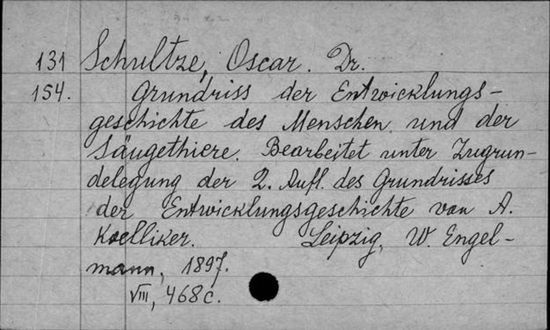 131 Schultze, Oscar. Dr.
154. Grundriss der Entwicklungs-
geschichte des Menschen und der
Säugethiere. Bearbeitet unter Zugrun-
delegung der 2. Aufl. des Grundrisses
der Entwicklungsgeschichte von A.
Koelliker. Leipzig, W. Engel-
mann, 1897.
VIII, 468 c.